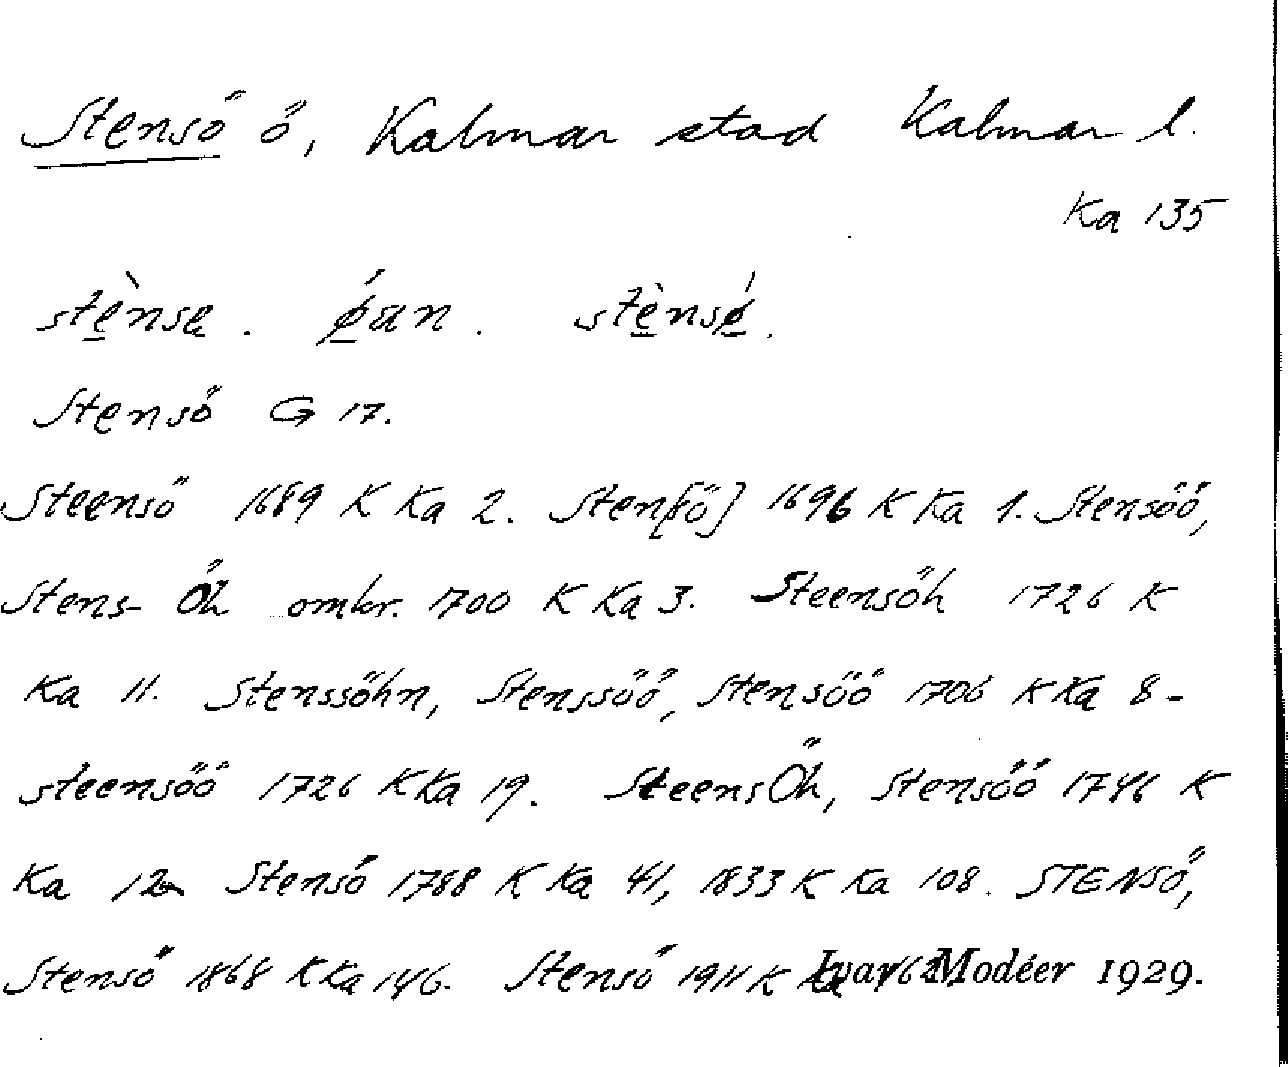 Stensö ö, Kalmar stad Kalmar l.
Ka 135
stè̱nsə. ǿ̱an. stè̱nsǿ̱.
Stensö G 17.
Steensö 1689 K Ka 2. Sten[sö] 1696 K Ka 1. Stensöö,
Stens- Öh omkr. 1700 K Ka 3. Steensöh 1726 K
Ka 11. Stenssöhn, Stenssöö, Stensöö 1706 K Ka 8-
steensöö 1726 K Ka 19. SteensÖh, Stensöö 1746 K
Ka 12a Stensö 1788 K Ka 41, 1833 K Ka 108. STENSÖ,
Stensö 1868 K Ka 146. Stensö 1911 K Ka Ivar Modéer 1929.